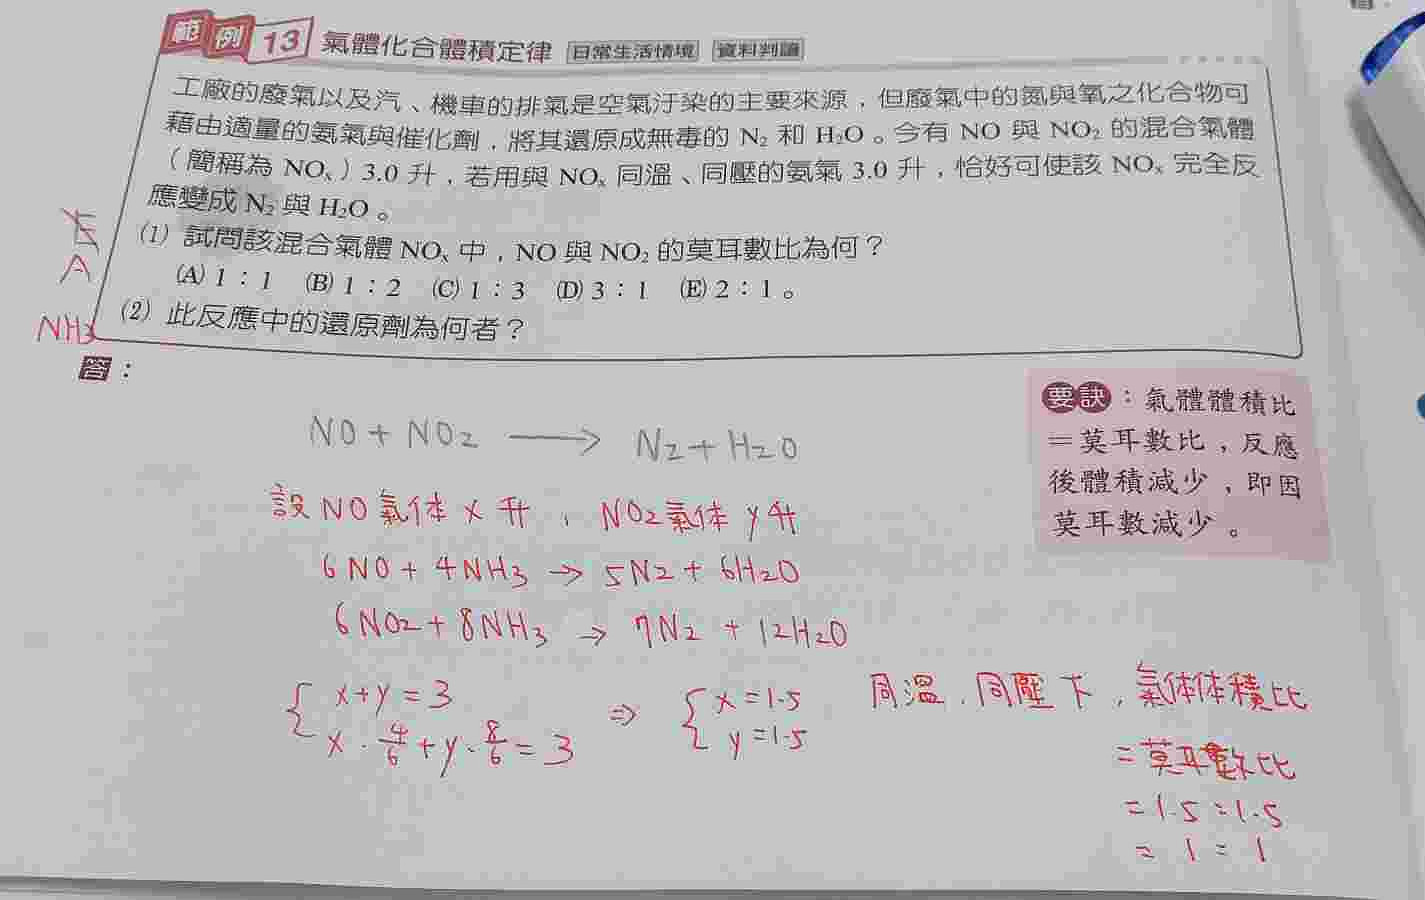 範例 13 氣體化合體積定律 日常生活情境 資料判讀
工廠的廢氣以及汽、機車的排氣是空氣汙染的主要來源，但廢氣中的氮與氧之化合物可
藉由適量的氨氣與催化劑，將其還原成無毒的 N₂ 和 H₂O。今有 NO 與 NO₂ 的混合氣體
（簡稱為 NOₓ）3.0 升，若用與 NOₓ 同溫、同壓的氨氣 3.0 升，恰好可使該 NOₓ 完全反
應變成 N₂ 與 H₂O。
(1) 試問該混合氣體 NOₓ 中，NO 與 NO₂ 的莫耳數比為何？
A
(A) 1：1 (B) 1：2 (C) 1：3 (D) 3：1 (E) 2：1。
(2) 此反應中的還原劑為何者？
NH₃
答：
要訣：氣體體積比
＝莫耳數比，反應
後體積減少，即因
莫耳數減少。
NO + NO₂ → N₂ + H₂O
設 NO氣体 x 升，NO₂氣体 y升
6NO + 4NH₃ → 5N₂ + 6H₂O
6NO₂ + 8NH₃ → 7N₂ + 12H₂O
{ x+y = 3
x · 4/6 + y · 8/6 = 3
⇒ { x = 1.5
y = 1.5
同溫、同壓下，氣体体積比
= 莫耳數比
= 1.5 : 1.5
= 1 : 1